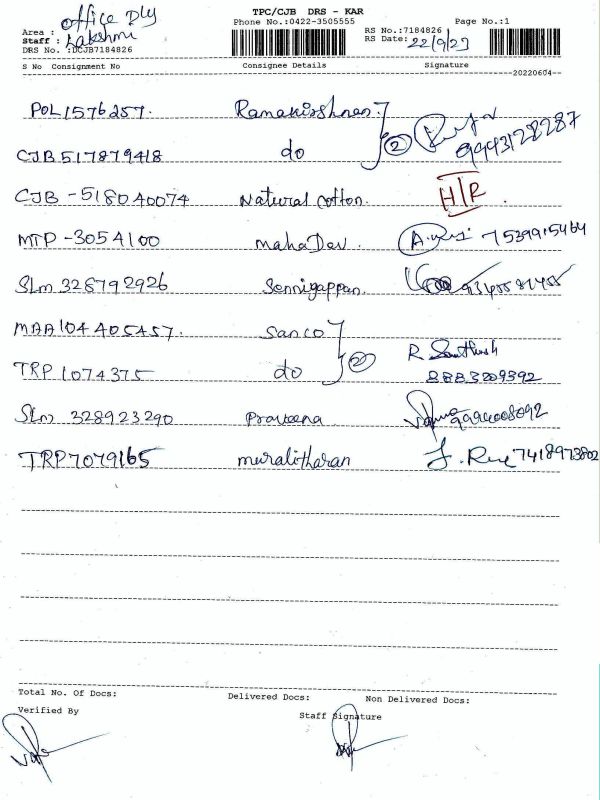 TPC/CJB DRS - KAR
Phone No.:0422-3505555
Page No.:1
Area : office Dly
Staff : Lakshmi
DRS No. :DCJB7184826
RS No.:7184826
RS Date: 22/9/23
S No Consignment No Consignee Details Signature
20220604
POL1576257. Ramakirshnan
CJB517879418 do 2 9943128287
CJB -518040074 Natural Cotton. H/R
MTP -3054100 mahaDev 7539915464
Slm 328792926 Sennigappan.
MAA104405457. Sanco
TRP 1074375 do 2 R Santhosh
8883209392
Slm 328923290 Praveena 9994008092
TRP7079165 muralitharan 7418973802
Total No. Of Docs: Delivered Docs: Non Delivered Docs:
Verified By Staff Signature